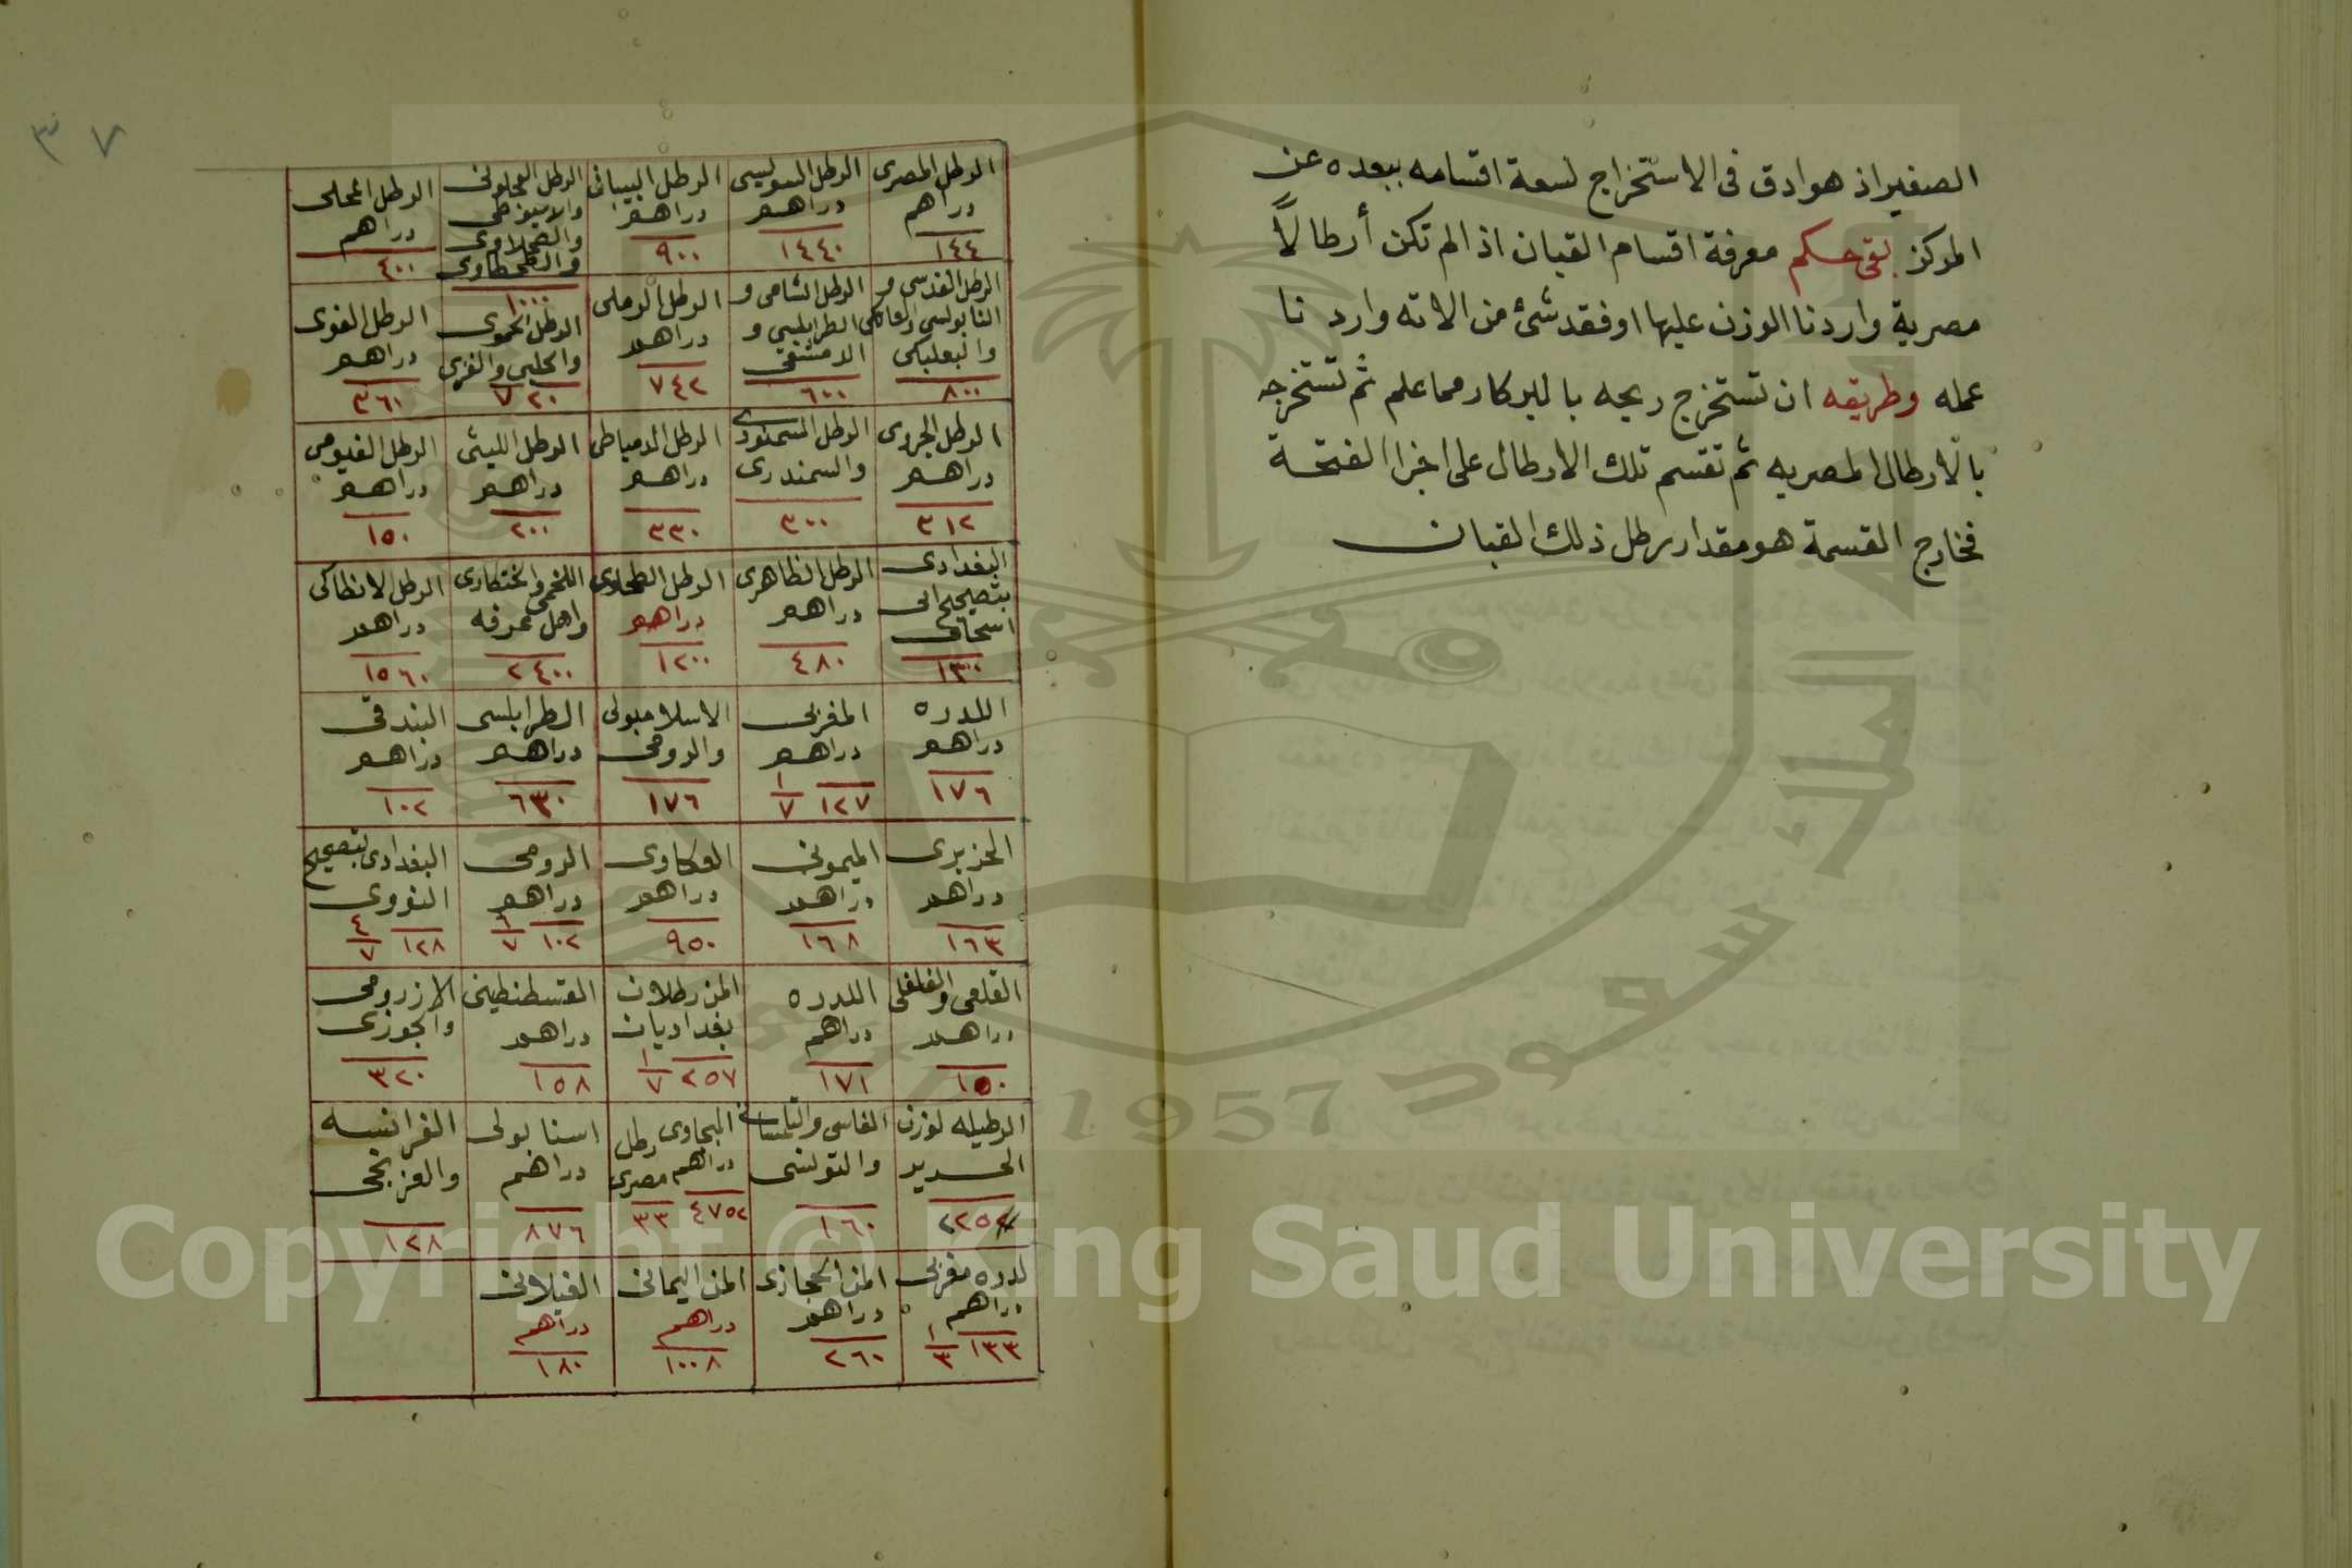 الصغير اذ هو ادق فى الاستخراج لسعة اقسامه ببعده عن
المركز بقى حكم معرفة اقسام القبان اذ الم تكن أرطالاً
مصرية واردنا الوزن عليها او فقد شئ من الاته واردنا
عمله وطريقه ان تستخرج ريحه بالبركار مما علم ثم تستخرجه
بالارطال المصريه ثم تقسم تلك الارطال على اخرا الفتحة
فخارج القسمة هو مقدار رطل ذلك القبان
٣٧
الرطل المصرى دراهم ١٤٤
الرطل السويسى دراهم ١٤٤٠
الرطل البيبانى دراهم ٩٠٠
الرطل العجلونى والاسيوطى والطحطاوى ١٠٠٠
الرطل المحلى دراهم ٤٠٠
الرطل القدسى و النابولسى والعاكى والبعلبكى ٨٠٠
الرطل الشامى و الطرابلسى و الدمشقى ٦٠٠
الرطل الرملى دراهم ٧٤٢
الرطل الحموى والحلبى والغزى ٧٢٠
الرطل الفوى دراهم ٣٦٠
الرطل الجروى دراهم ٣١٢
الرطل السمنودى والسمندرى ٣٠٠
الرطل الدمياطى دراهم ٣٣٠
الرطل الليثى دراهم ٢٠٠
الرطل الفيومى دراهم ١٥٠
البغدادى بتصحيح ابى اسحاق ١٣٠
الرطل الظاهرى دراهم ٤٨٠
الرطل الطحاوى دراهم ١٢٠٠
اللخمى والختكارى واهل ٢٤٠٠
الرطل الانطاكى دراهم ١٥٦٠
اللدره دراهم ١٧٦
المغربى دراهم ١٢٧ ١/٧
الاسلامبولى والرومى ١٧٦
الطرابلسى دراهم ٦٣٠
البندقى دراهم ١٠٢
الجزيرى دراهم ١٦٣
الميمونى دراهم ١٦٨
العكاوى دراهم ٩٥٠
الرومى دراهم ١٠٢ ٦/٧
البغدادى بتصحيح النووى ١٢٨ ٤/٧
القلعى والفلفلى دراهم ١٥٠
اللدره دراهم ١٧١
المن رطلان بغداديان ٢٥٧ ١/٧
القسطنطينى دراهم ١٥٨
الارزرومى والجوزى ٣٢٠
الرطيله لوزن الحديد ٢٢٥٢
الفاسى والتلمسانى والتونسى ١٦٠
البجاوى دراهم ٤٧٥٢ رطل مصرى ٣٣
اسنابولى دراهم ٨٧٦
الفرانسه والفرنجى ١٢٨
لدره مغربى دراهم ١٣٣ ١/٣
المن الحجازى دراهم ٢٦٠
المن اليمانى دراهم ١٠٠٨
الغيلانى دراهم ١٨٠
1957
Copyright © King Saud University